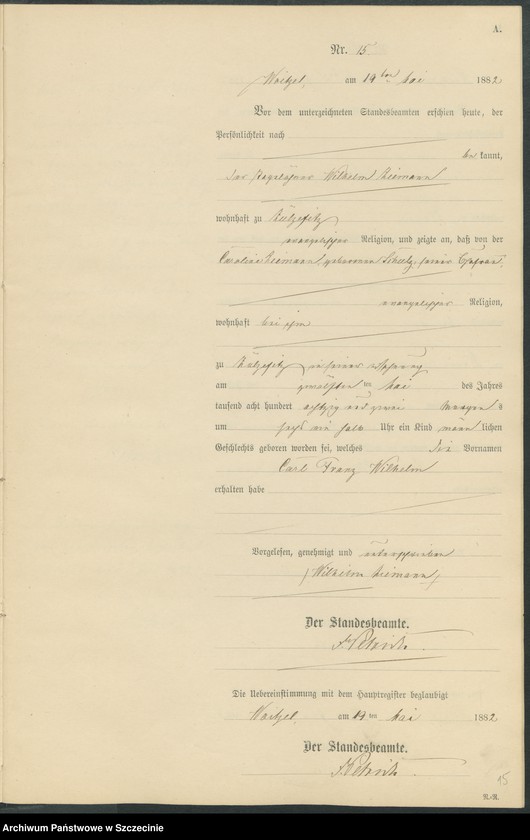 A.
Nr. 15
Woitzel, am 19ten Mai 1882
Vor dem unterzeichneten Standesbeamten erschien heute, der
Persönlichkeit nach
be kannt,
der Wilhelm Riemann
wohnhaft zu
evangelischer Religion, und zeigte an, daß von der
Caroline Riemann, geborenen Schulz, seiner Ehefrau,
evangelischer Religion,
wohnhaft bei ihm
zu in seiner Wohnung
am zwölften ten Mai des Jahres
tausend acht hundert achtzig und zwei Morgen s
um sechs ein halb Uhr ein Kind männ lichen
Geschlechts geboren worden sei, welches die Vornamen
Carl Franz Wilhelm
erhalten habe
Vorgelesen, genehmigt und unterschrieben
Wilhelm Riemann
Der Standesbeamte.
Die Uebereinstimmung mit dem Hauptregister beglaubigt
Woitzel, am 19 ten Mai 1882
Der Standesbeamte.
15
R.-R.
Archiwum Państwowe w Szczecinie